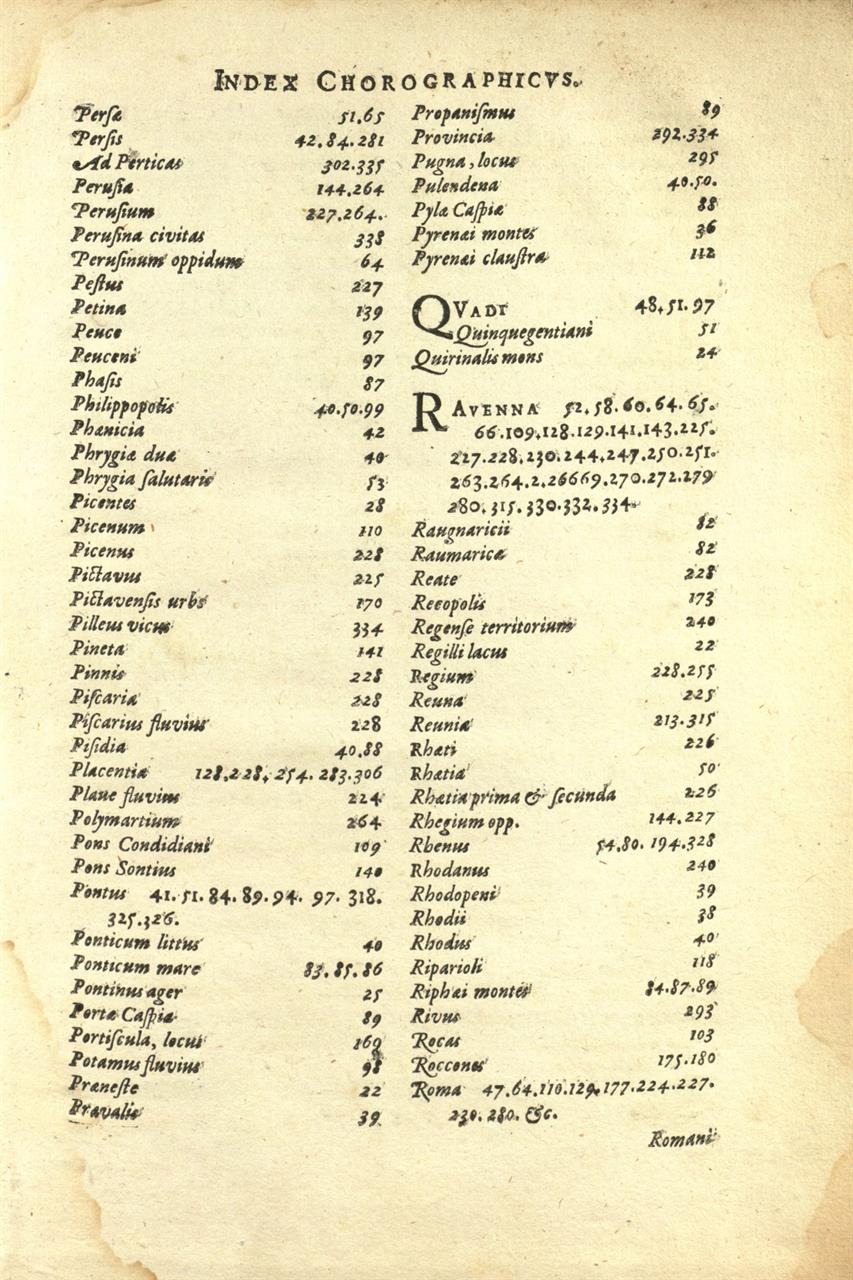 INDEX CHOROGRAPHICVS.
Persæ 51.65
Persis 42.84.281
Ad Perticas 302.335
Perusia 144.264
Perusium 227.264.
Perusina civitas 338
Perusinum oppidum 64
Pestus 227
Petina 139
Peuce 97
Peuceni 97
Phasis 87
Philippopolis 40.50.99
Phœnicia 42
Phrygiæ duæ 40
Phrygia salutaris 53
Picentes 28
Picenum 110
Picenus 228
Pictavus 225
Pictavensis urbs 170
Pilleus vicus 334
Pineta 141
Pinnis 228
Piscaria 228
Piscarius fluvius 228
Pisidia 40.88
Placentia 128.228. 254. 283.306
Plaue fluvius 224
Polymartium 264
Pons Condidiani 109
Pons Sontius 140
Pontus 41. 51. 84. 89. 94. 97. 318.
325.326.
Ponticum littus 40
Ponticum mare 83.85.86
Pontinus ager 25
Portæ Caspiæ 89
Portiscula, locus 169
Potamus fluvius 98
Præneste 22
Prævalis 39
Propanismus 89
Provincia 292.334
Pugna, locus 295
Pulendena 40.50.
Pylæ Caspiæ 88
Pyrenæi montes 36
Pyrenæi claustra 112
QVADI 48.51.97
Quinquegentiani 51
Quirinalis mons 24
RAVENNA 52.58.60.64.65.
66.109.128.129.141.143.225.
227.228.230.244.247.250.251.
263.264.2.26669.270.272.279
280.315.330.332.334.
Raugnaricii 82
Raumaricæ 82
Reate 228
Recopolis 173
Regense territorium 240
Regilli lacus 22
Regium 228.255
Reuna 225
Reuniæ 213.315
Rhæti 226
Rhætia 50
Rhætia prima & secunda 226
Rhegium opp. 144.227
Rhenus 54.80. 194.328
Rhodanus 240
Rhodopeni 39
Rhodii 38
Rhodus 40
Riparioli 118
Riphæi montes 84.87.89
Rivus 293
Rocas 103
Roccones 175.180
Roma 47.64.110.129.177.224.227.
230. 280. &c.
Romani